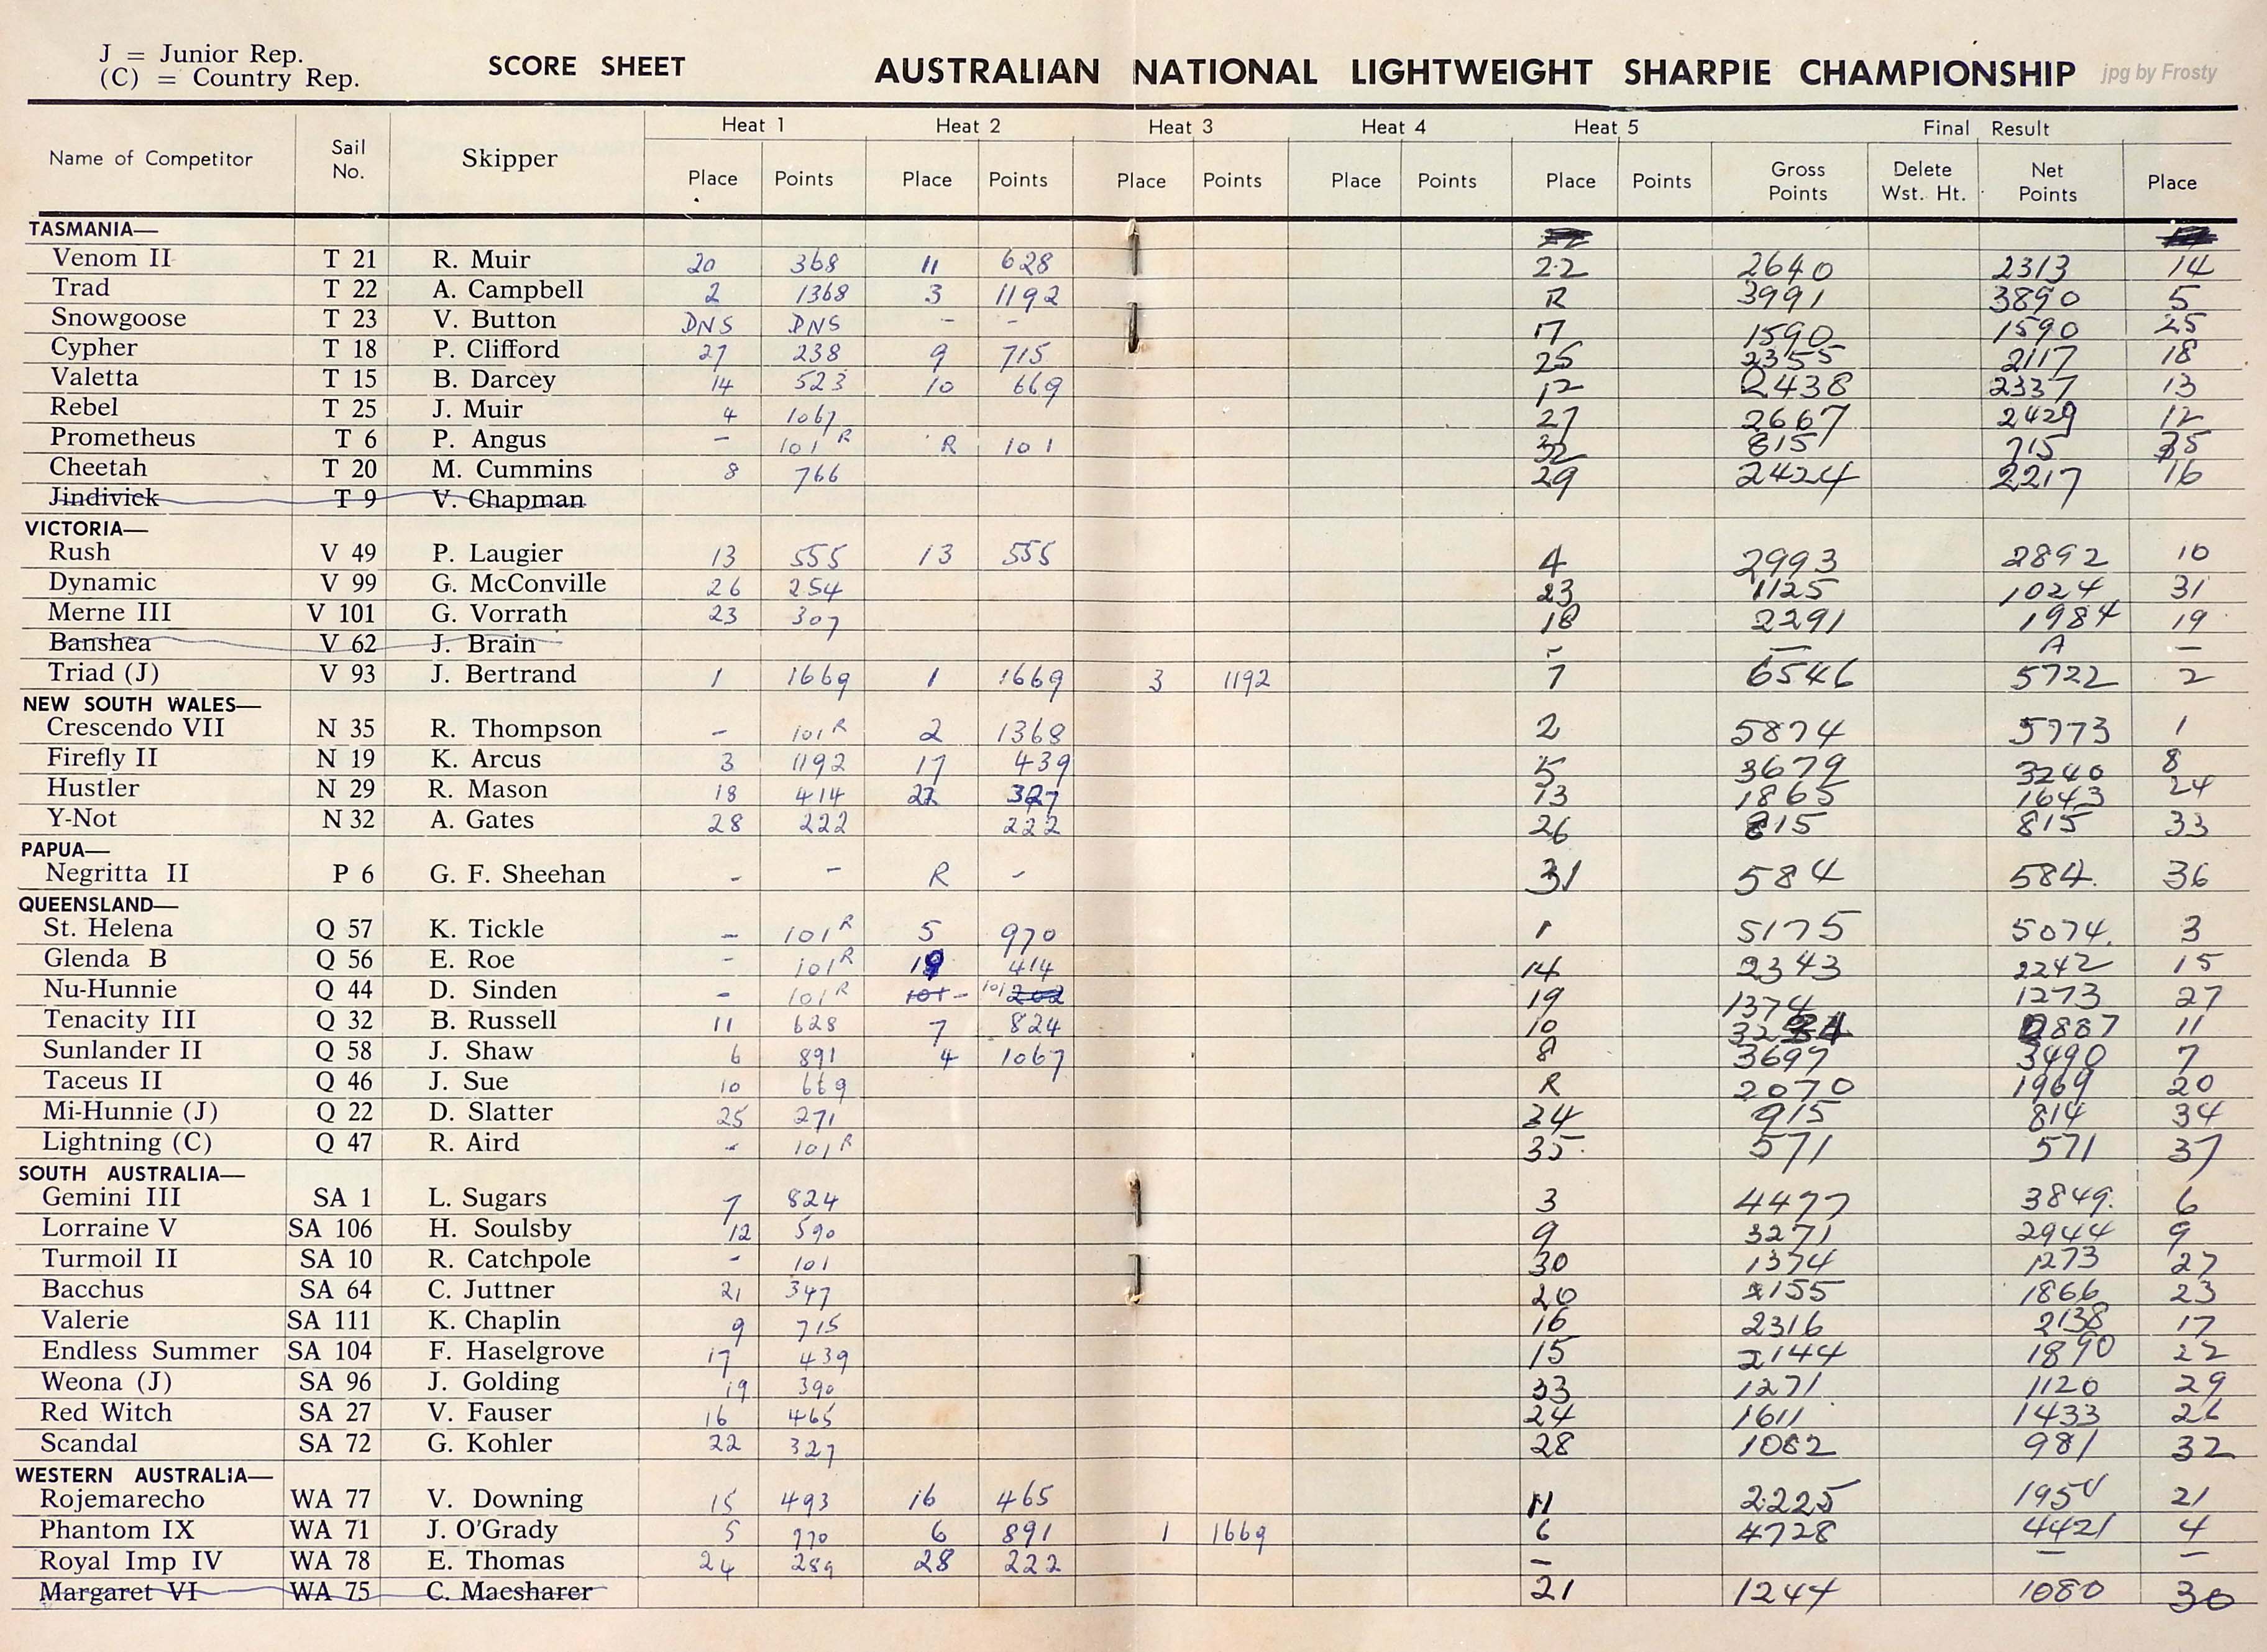 J = Junior Rep.
(C) = Country Rep.
SCORE SHEET AUSTRALIAN NATIONAL LIGHTWEIGHT SHARPIE CHAMPIONSHIP jpg by Frosty
Heat 1 Heat 2 Heat 3 Heat 4 Heat 5 Final Result
Name of Competitor Sail No. Skipper Place Points Place Points Place Points Place Points Place Points Gross Points Delete Wst. Ht. Net Points Place
TASMANIA—
Venom II T 21 R. Muir 20 368 11 628 22 2640 2313 14
Trad T 22 A. Campbell 2 1368 3 1192 R 3991 3890 5
Snowgoose T 23 V. Button DNS DNS - - 17 1590 1590 25
Cypher T 18 P. Clifford 27 238 9 715 25 2355 2117 18
Valetta T 15 B. Darcey 14 523 10 669 12 2438 2337 13
Rebel T 25 J. Muir 4 1067 27 2667 2429 12
Prometheus T 6 P. Angus - 101 R R 101 32 815 715 35
Cheetah T 20 M. Cummins 8 766 29 2424 2217 16
Jindivick T 9 V. Chapman
VICTORIA—
Rush V 49 P. Laugier 13 555 13 555 4 2993 2892 10
Dynamic V 99 G. McConville 26 254 23 1125 1024 31
Merne III V 101 G. Vorrath 23 307 18 2291 1984 19
Banshea V 62 J. Brain - — A —
Triad (J) V 93 J. Bertrand 1 1669 1 1669 3 1192 7 6546 5722 2
NEW SOUTH WALES—
Crescendo VII N 35 R. Thompson - 101 R 2 1368 2 5874 5773 1
Firefly II N 19 K. Arcus 3 1192 17 439 5 3679 3240 8
Hustler N 29 R. Mason 18 414 22 327 13 1865 1643 24
Y-Not N 32 A. Gates 28 222 222 26 815 815 33
PAPUA—
Negritta II P 6 G. F. Sheehan - - R - 31 584 584. 36
QUEENSLAND—
St. Helena Q 57 K. Tickle - 101 R 5 970 1 5175 5074. 3
Glenda B Q 56 E. Roe - 101 R 414 14 2343 2242 15
Nu-Hunnie Q 44 D. Sinden - 101 R 101 - 101 202 19 1374 1273 27
Tenacity III Q 32 B. Russell 11 628 7 824 10 2887 11
Sunlander II Q 58 J. Shaw 6 891 4 1067 8 3697 3490 7
Taceus II Q 46 J. Sue 10 669 R 2070 1969 20
Mi-Hunnie (J) Q 22 D. Slatter 25 271 34 915 814 34
Lightning (C) Q 47 R. Aird - 101 R 35 571 571 37
SOUTH AUSTRALIA—
Gemini III SA 1 L. Sugars 7 824 3 4477 3849. 6
Lorraine V SA 106 H. Soulsby 12 590 9 3271 2944 9
Turmoil II SA 10 R. Catchpole - 101 30 1374 1273 27
Bacchus SA 64 C. Juttner 21 347 20 2155 1866 23
Valerie SA 111 K. Chaplin 9 715 16 2316 2138 17
Endless Summer SA 104 F. Haselgrove 17 439 15 2144 1890 22
Weona (J) SA 96 J. Golding 19 390 33 1271 1120 29
Red Witch SA 27 V. Fauser 16 465 24 1611 1433 26
Scandal SA 72 G. Kohler 22 327 28 1082 981 32
WESTERN AUSTRALIA—
Rojemarecho WA 77 V. Downing 15 493 16 465 11 2225 1954 21
Phantom IX WA 71 J. O'Grady 5 970 6 891 1 1669 6 4728 4421 4
Royal Imp IV WA 78 E. Thomas 24 289 28 222 — — —
Margaret VI WA 75 C. Macsharer 21 1244 1080 30